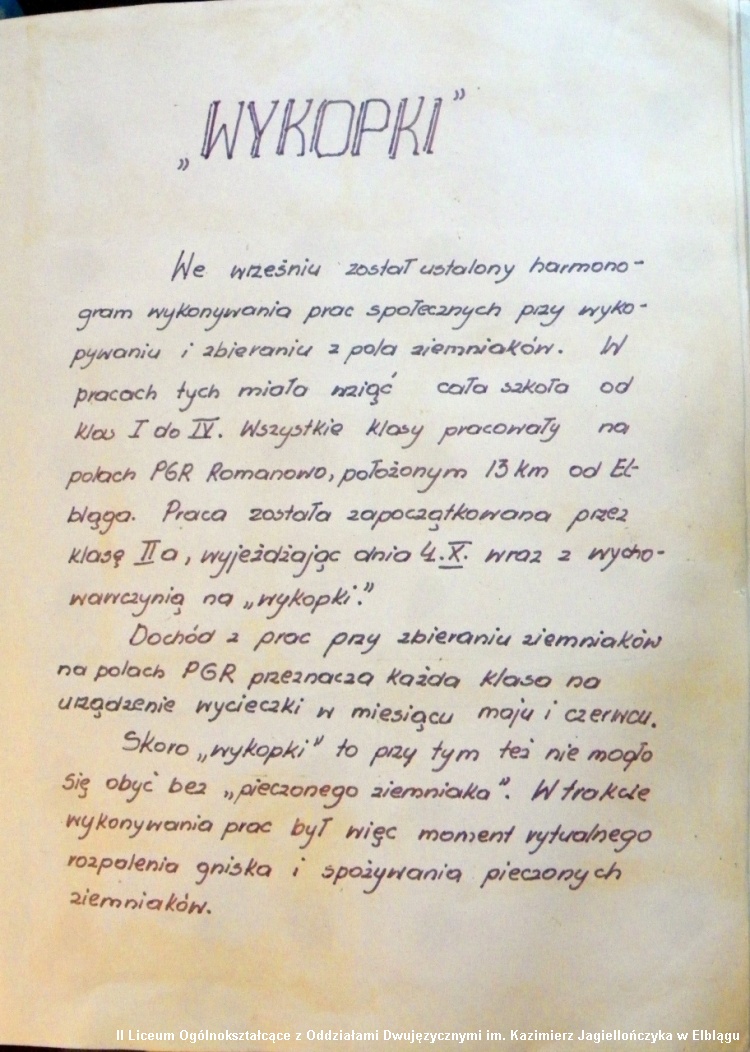 „WYKOPKI”
We wrześniu został ustalony harmono-
gram wykonywania prac społecznych przy wyko-
pywaniu i zbieraniu z pola ziemniaków. W
pracach tych miała wziąć cała szkoła od
klas I do IV. Wszystkie klasy pracowały na
polach PGR Romanowo, położonym 13 km od El-
bląga. Praca została zapoczątkowana przez
klasę IIa, wyjeżdżając dnia 4.X. wraz z wycho-
wawczynią na „wykopki”.
Dochód z prac przy zbieraniu ziemniaków
na polach PGR przeznacza każda klasa na
urządzenie wycieczki w miesiącu maju i czerwcu.
Skoro „wykopki” to przy tym też nie mogło
się obyć bez „pieczonego ziemniaka”. W trakcie
wykonywania prac był więc moment rytualnego
rozpalenia gniska i spożywania pieczonych
ziemniaków.
II Liceum Ogólnokształcące z Oddziałami Dwujęzycznymi im. Kazimierz Jagiellończyka w Elblągu